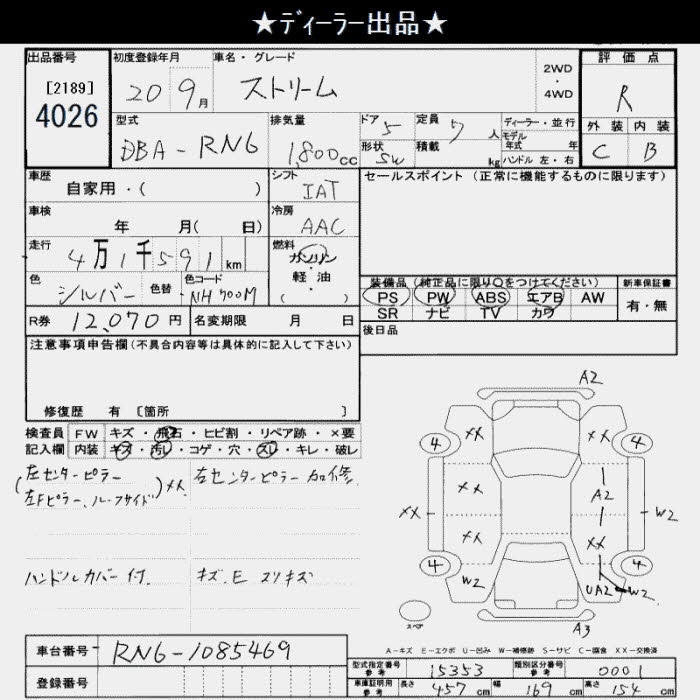 ★ディーラー出品★
出品番号 初度登録年月 車名・グレード 2WD・4WD 評価点
[2189] 20 9月 ストリーム R
4026 外装 内装
型式 排気量 ドア 定員 ディーラー・並行 C B
DBA-RN6 1,800cc 5 7人 モデル年式 年
形状 積載 ハンドル 左・右
SW kg
車歴 シフト セールスポイント (正常に機能するものに限ります)
自家用・( ) IAT
車検 冷房
年 月( 日) AAC
走行 燃料
4万1千591km ガソリン・軽油
色 色替 色コード ( )
シルバー NH700M
装備品 (純正品に限り○をつけてください) 新車保証書
PS PW ABS エアB AW 有・無
SR ナビ TV カワ
R券 12,070円 名変期限 月 日
後日品
注意事項申告欄(不具合内容等は具体的に記入して下さい)
修復歴 有 〔箇所 〕
検査員 FW キズ・飛石・ヒビ割・リペア跡・×要
記入欄 内装 キズ・汚レ・コゲ・穴・スレ・キレ・破レ
(左センターピラー 右センターピラー加修
左Fピラー、ルーフサイド)××
ハンドルカバー付. キズ.E スリキズ
A2
4 ×× ×× 4
×× A2
×× W2
×× ××
4 W2 UA2 W2 4
スペア
A3
A-キズ E-エクボ U-凹み W-補修跡 S-サビ C-腐食 XX-交換済
車台番号 RN6-1085469
登録番号
型式指定番号 参考 15353 類別区分番号 参考 0001
車庫証明用 参考 長さ 457cm 幅 169cm 高さ 154cm